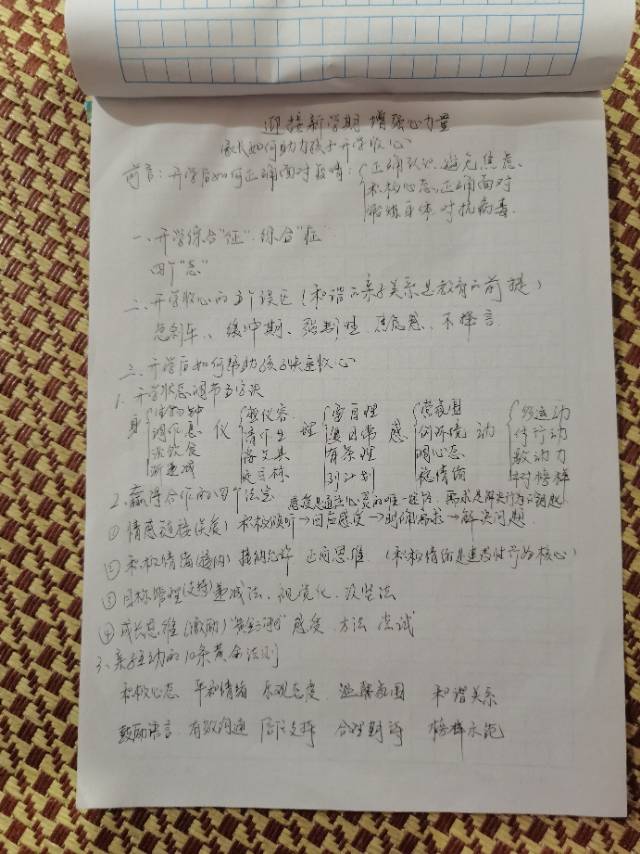 迎接新学期 增强心力量
家长如何助力孩子开学收心
前言:开学后如何正确面对疫情:{正确认识,避免焦虑、
积极心态,正确面对
锻炼身体 对抗病毒.
一、开学综合"征".综合"症"
四个"怠"
二、开学收心的五个误区(和谐的亲子关系是教育的前提)
急刹车、缓冲期、强制性.焦虑感、不择言
三、开学后如何帮助孩子快速收心
1.开学状态调节五字诀
身 仪 理 感 动
调作息 理日常 调心态 修行动
有条理 稳情绪 敦动力
列计划 对榜样
2.赢得合作的四个法宝 态度是通往心灵的唯一途径、需求是解决行为的钥匙
① 情感链接(误差)积极倾听→回应感受→明确需求→解决问题.
② 积极情绪(接纳)接纳允许 正向思维.(积极情绪是连改行为的核心)
③ 目标管理(支持)递减法、视觉化、
④ 成长思维(激励)"黄金三问" 感受 方法 尝试
3、亲子互动的10条黄金法则
积极心态 平和情绪 乐观态度 温馨氛围 和谐关系
鼓励语言 有效沟通 合理期待 榜样示范